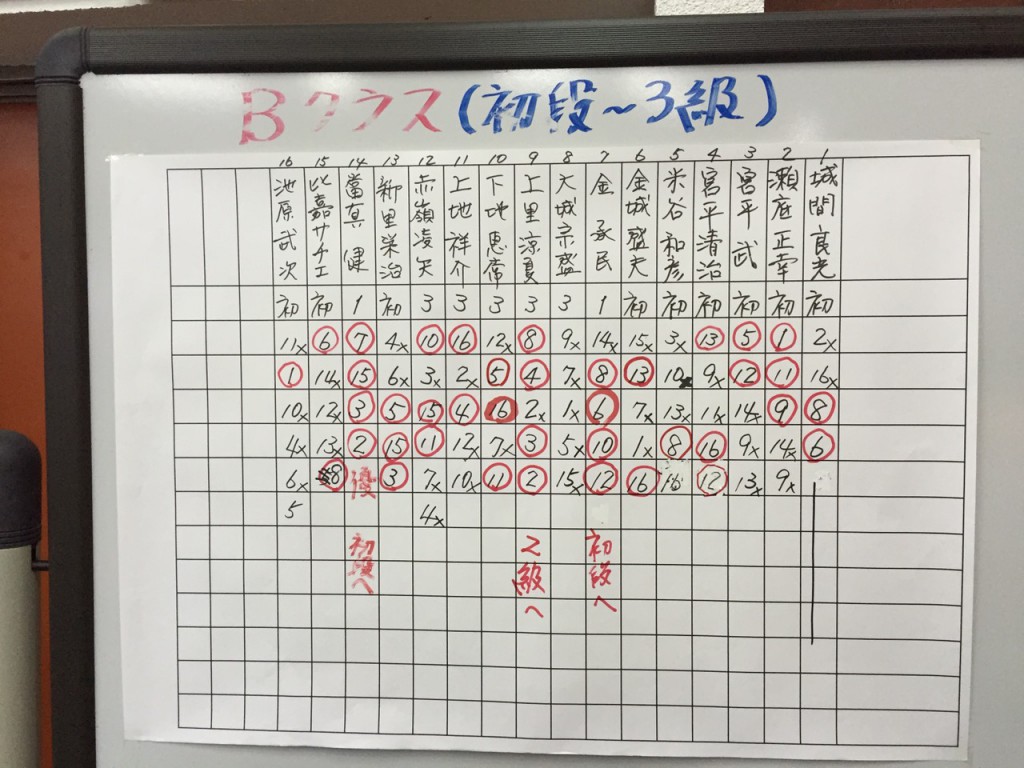 Bクラス(初段～3級)
16 15 14 13 12 11 10 9 8 7 6 5 4 3 2 1
池原武次 比嘉サチエ 當真健 新里栄治 赤嶺凌矢 上地祥介 下地恵常 上里涼真 大城宗盛 金承民 金城盛光 米谷和彦 宮平清治 宮平武 瀬底正幸 城間良光
初 初 1 初 3 3 3 3 3 1 初 初 初 初 初 初
11x 6 7 4x 10 16 12x 8 9x 14x 15x 3x 13 5 1 2x
1 14x 15 6x 3x 2x 5 4 7x 8 13 10x 9x 12 11 16x
10x 12x 3 5 15 4 16 2x 1x 6 7x 13x 11x 14x 9 8
4x 13x 2 15 11 12x 7x 3 5x 10 1x 8 16 9x 14x 6
6x 8 優 3 7x 10x 11 2 15x 12 16 16 12 13x 9x
5 4x
初段へ 2級へ 初段へ